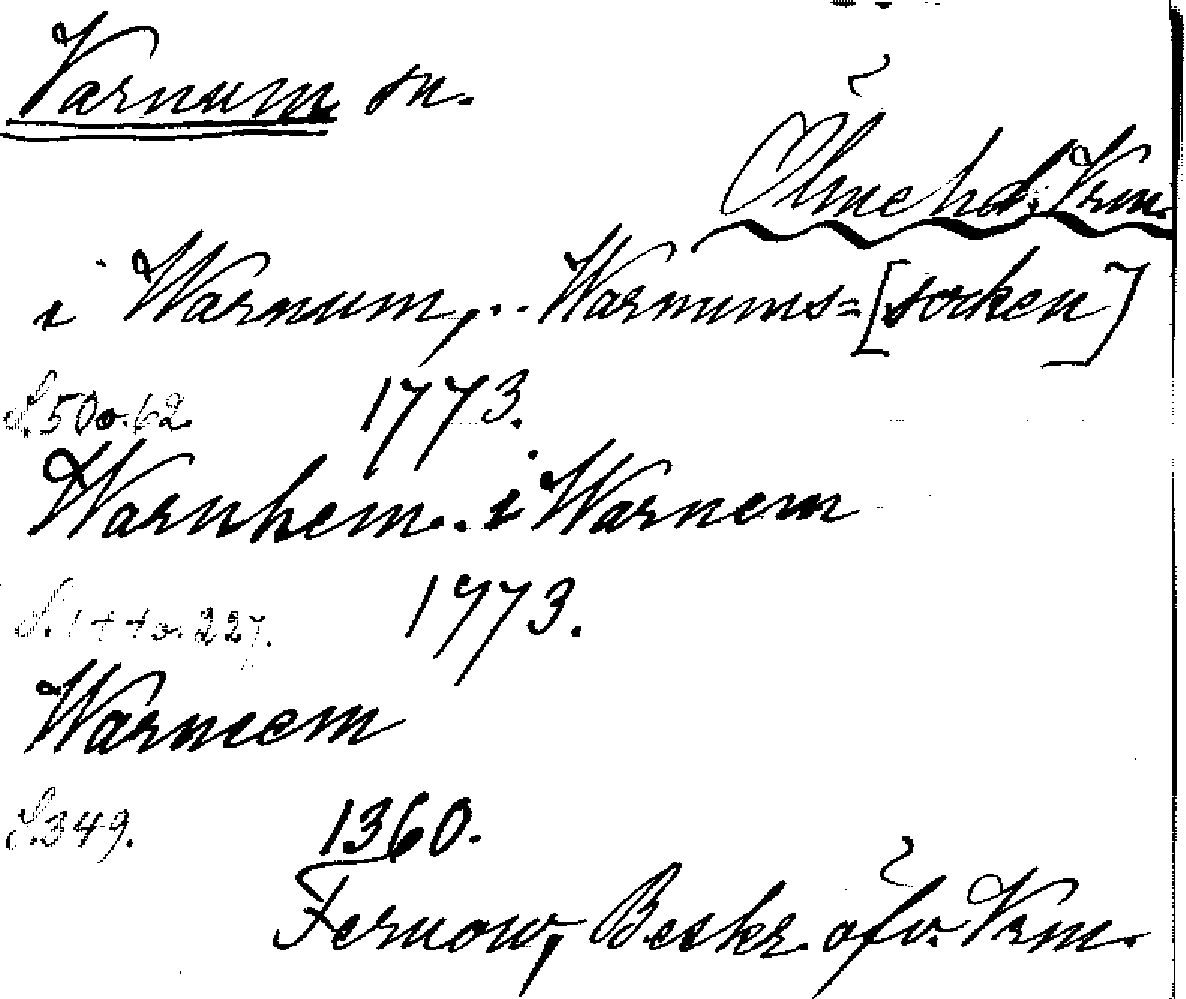 Varnum sn.
Ölme hd. Vrm.
i Warnum, .. Warnums=[socken]
S. 50 o. 62. 1773.
Warnhem .. i Warnem
S. 144 o. 227. 1773.
Warneem
S. 349. 1360.
Fernow, Beskr. öfv. Vrm.